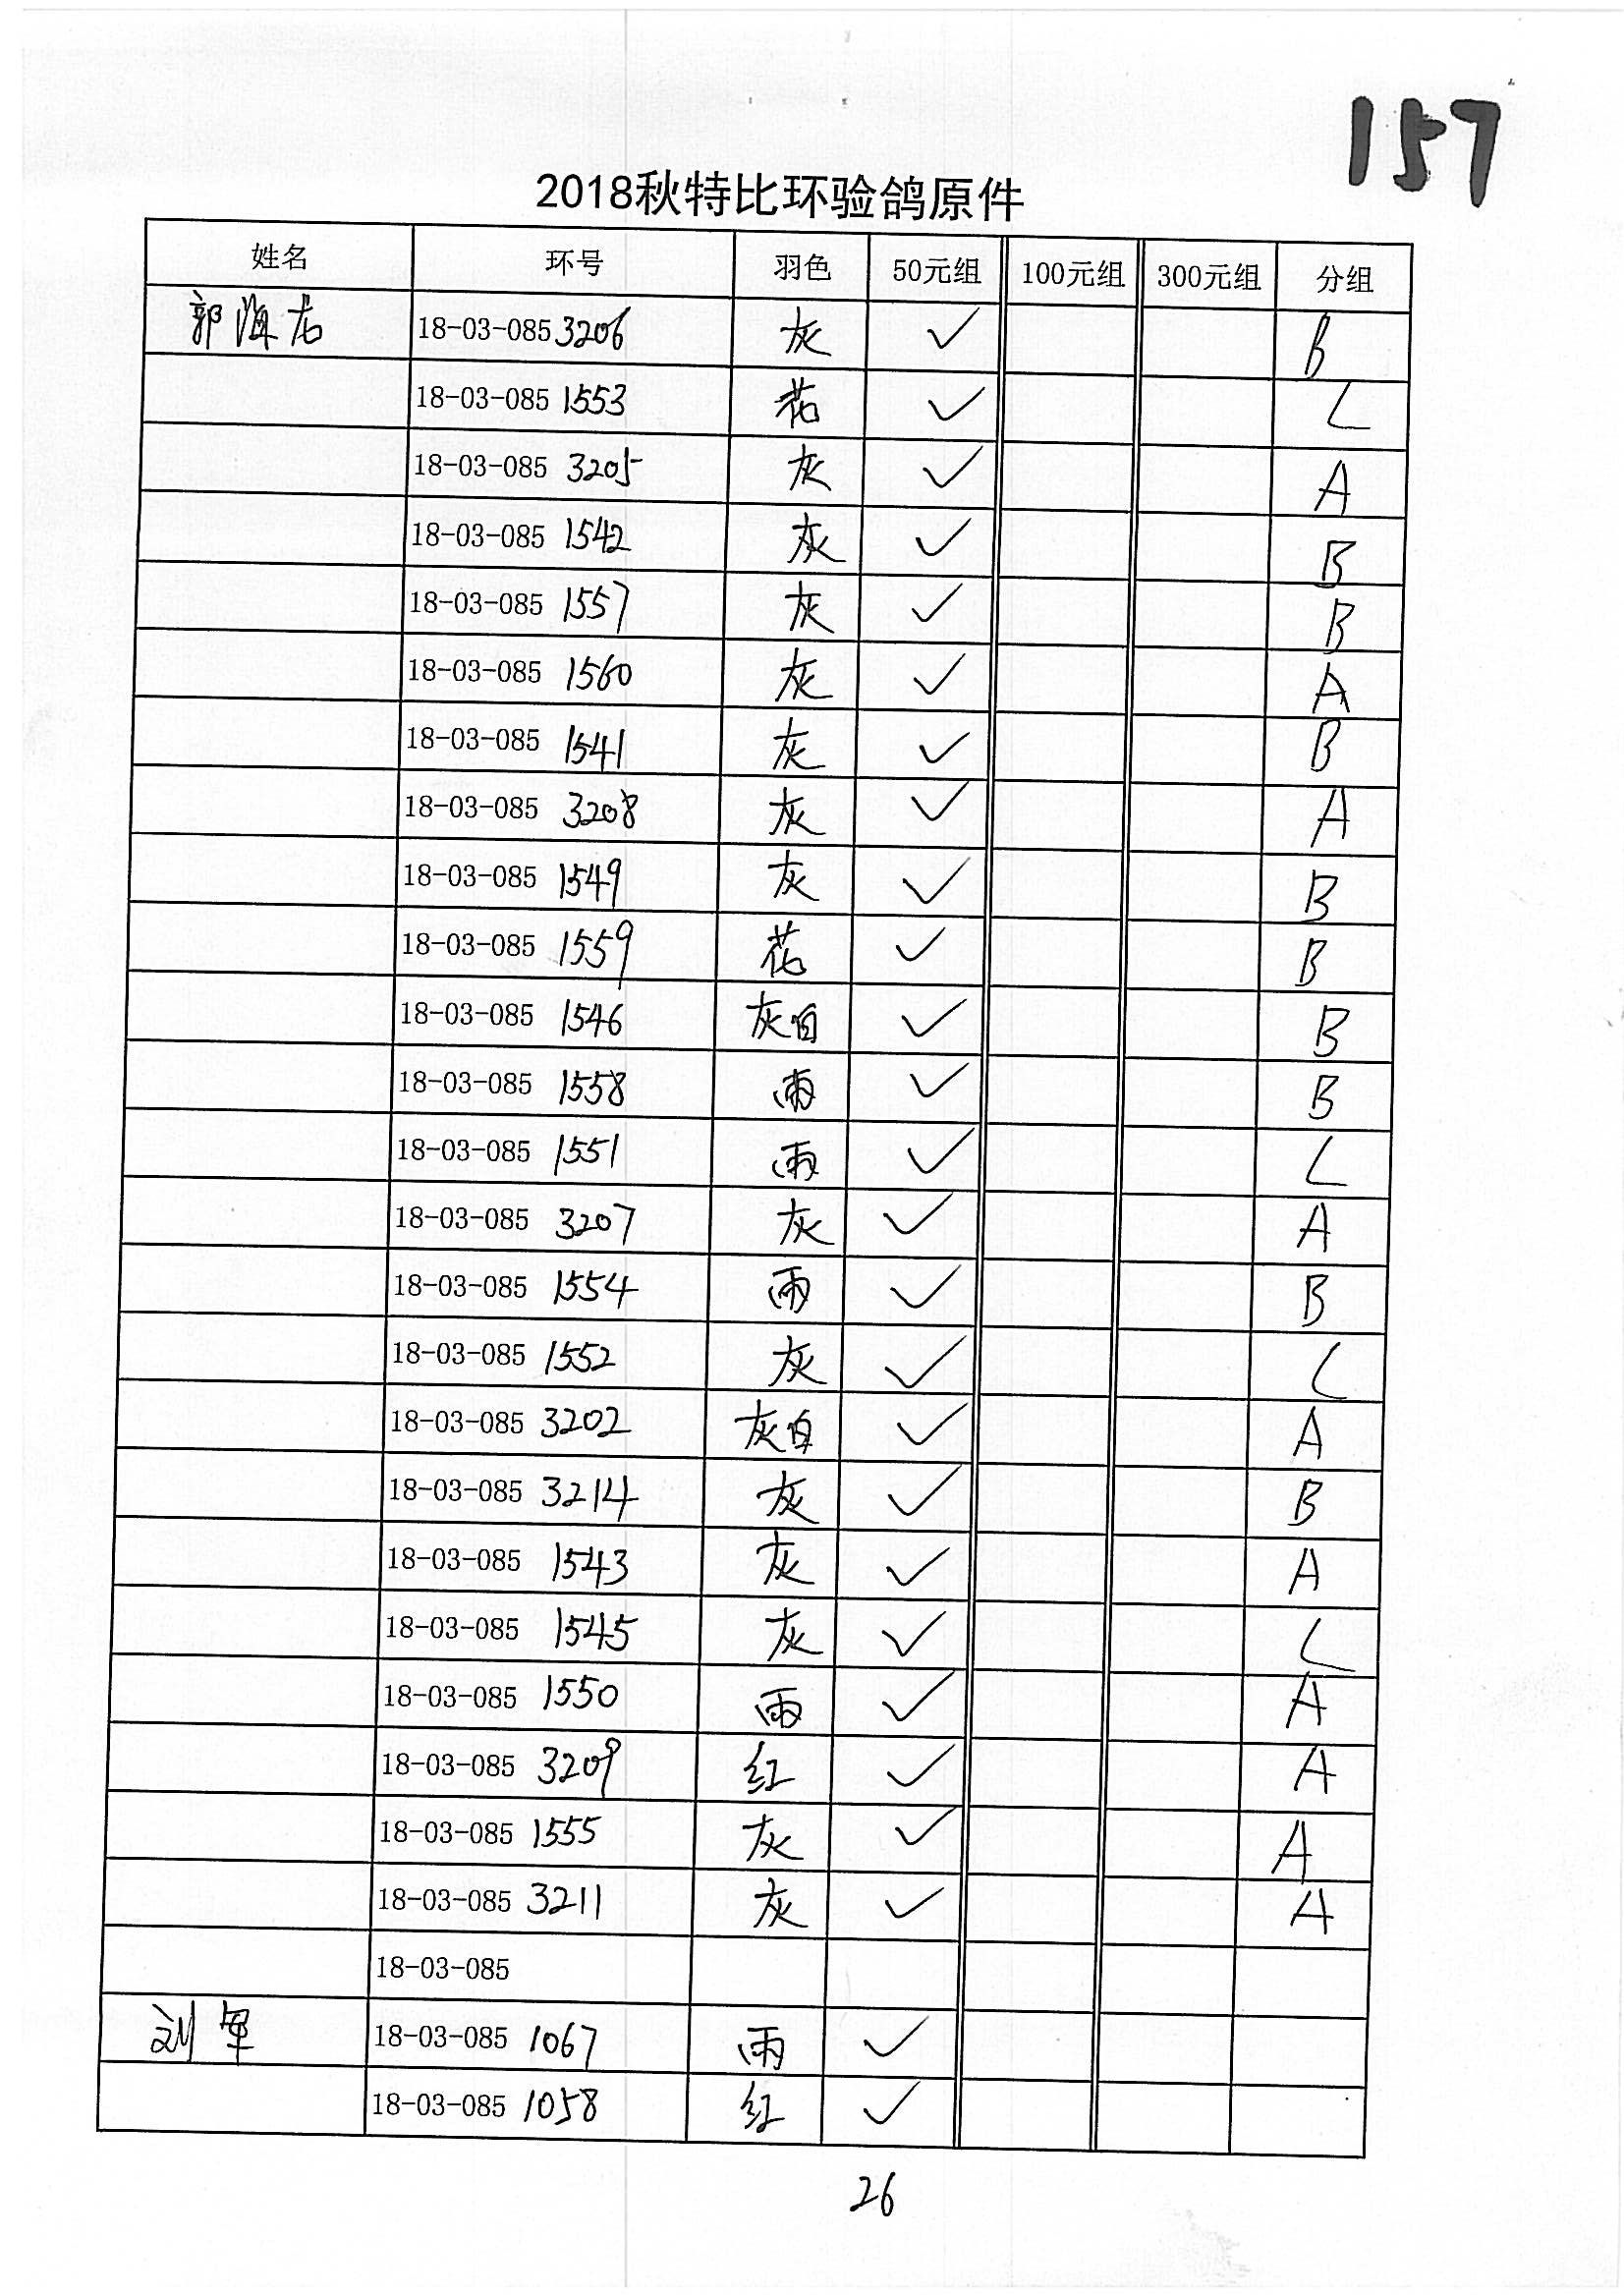 157
2018秋特比环验鸽原件
姓名 环号 羽色 50元组 100元组 300元组 分组
郭海龙 18-03-085 3206 灰 ✓ B
18-03-085 1553 花 ✓ C
18-03-085 3205 灰 ✓ A
18-03-085 1542 灰 ✓ B
18-03-085 1557 灰 ✓ B
18-03-085 1560 灰 ✓ A
18-03-085 1541 灰 ✓ B
18-03-085 3208 灰 ✓ A
18-03-085 1549 灰 ✓ B
18-03-085 1559 花 ✓ B
18-03-085 1546 灰白 ✓ B
18-03-085 1558 雨 ✓ B
18-03-085 1551 雨 ✓ C
18-03-085 3207 灰 ✓ A
18-03-085 1554 雨 ✓ B
18-03-085 1552 灰 ✓ C
18-03-085 3202 灰白 ✓ A
18-03-085 3214 灰 ✓ B
18-03-085 1543 灰 ✓ A
18-03-085 1545 灰 ✓ C
18-03-085 1550 雨 ✓ A
18-03-085 3209 红 ✓ A
18-03-085 1555 灰 ✓ A
18-03-085 3211 灰 ✓ A
18-03-085
刘军 18-03-085 1067 雨 ✓
18-03-085 1058 红 ✓
26